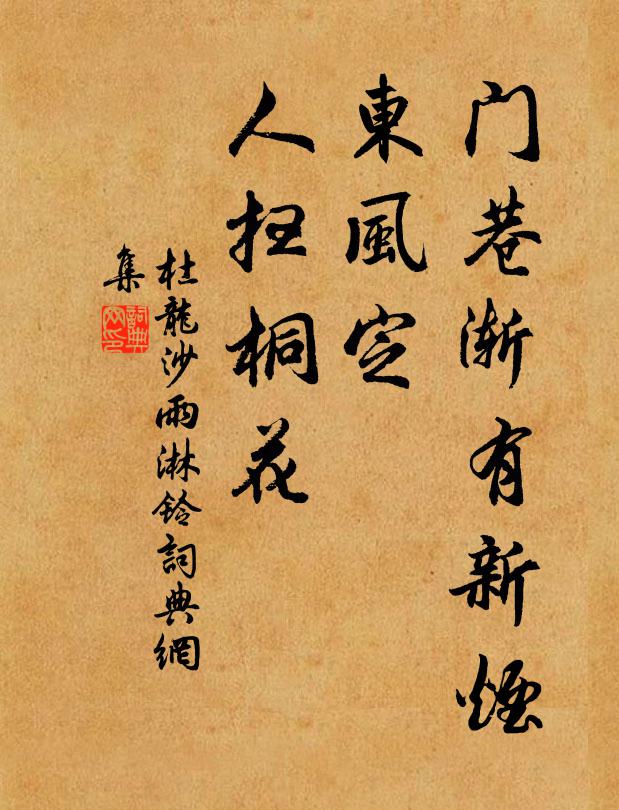 门巷渐有新煙
東風定
人扫桐花
杜龍沙雨淋铃詞典網
集
詞典
网印